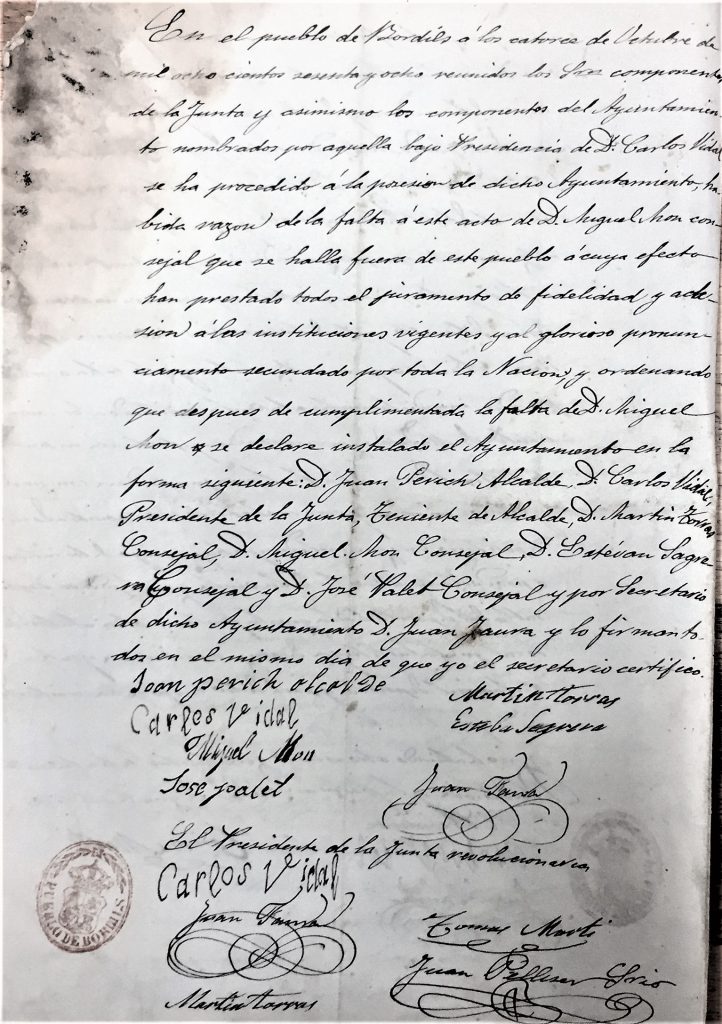 En el pueblo de Bordils á los catorce de Octubre de
mil ocho cientos sesenta y ocho reunidos los Sres componentes
de la Junta y asimismo los componentes del Ayuntamien-
to nombrados por aquella bajo Presidencia de D. Carlos Vidal
se ha procedido á la posesion de dicho Ayuntamiento, ha
bida razon de la falta á este acto de D. Miguel Mon con-
sejal que se halla fuera de este pueblo á cuya efecto
han prestado todos el juramento de fidelidad y ade-
sion á las instituciones vigentes y al glorioso pronun-
ciamento secundado por toda la Nacion, y ordenando
que despues de cumplimentada la falta de D. Miguel
Mon se declare instalado el Ayuntamiento en la
forma siguiente: D. Juan Perich Alcalde, D. Carlos Vidal,
Presidente de la Junta, Teniente de Alcalde, D. Martin Torras
Consejal, D. Miguel Mon Consejal, D. Estévan Sagre
ra Consejal y D. José Palet Consejal y por Secretario
de dicho Ayuntamiento D. Juan Faura y lo firman to-
dos en el mismo dia de que yo el secretario certifico.
Joan perich alcalde
Martin torras
Carlos Vidal
Esteba Sagrera
Miguel Mon
Jose palet
Juan Faura
El Presidente de la Junta revolucionaria
Carlos Vidal
Juan Faura
Tomas Marti
Juan Pellicer Srio
Martin torras
PUEBLO DE BORDILS